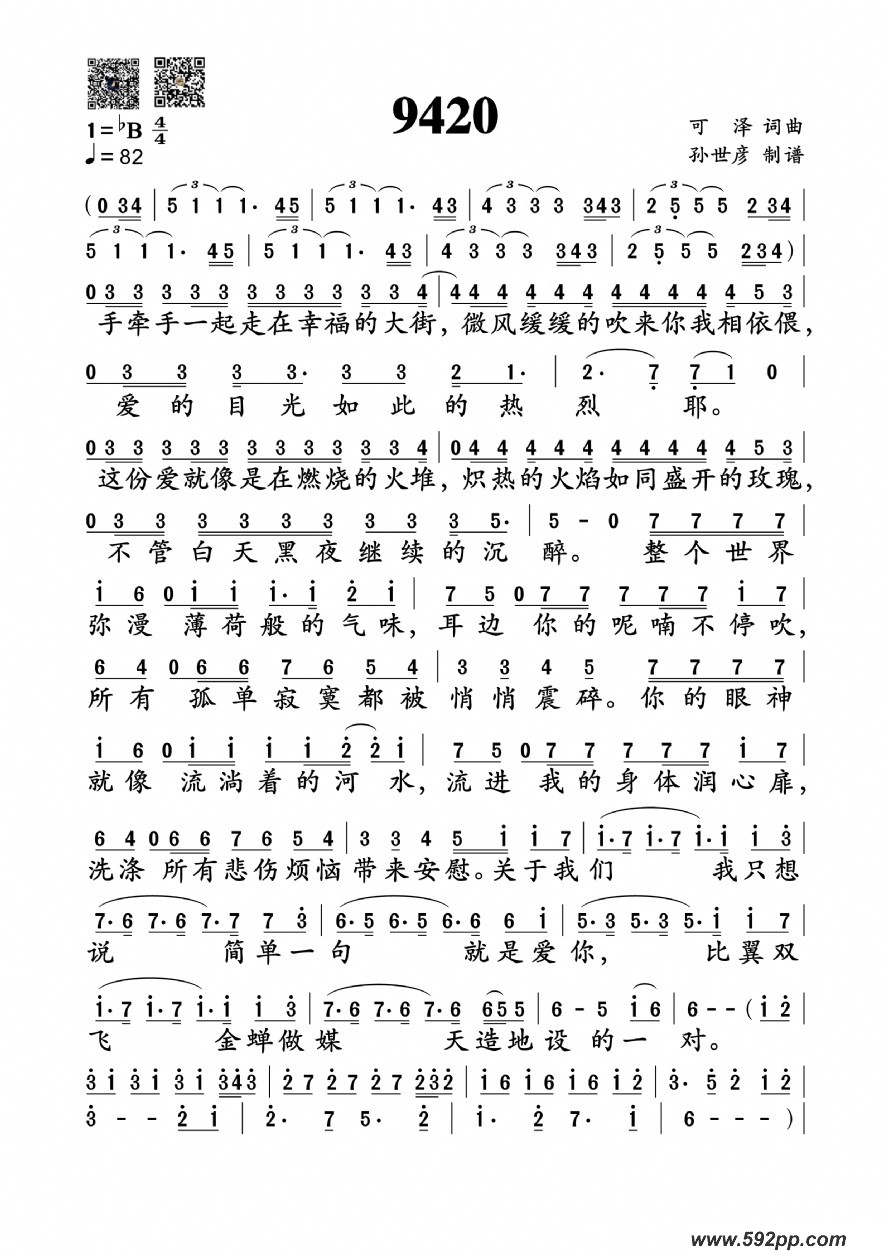 9420
1=♭B 4/4
♩=82
可 泽 词曲
孙世彦 制谱
(0 34 | 5 1 1 1· 45 | 5 1 1 1· 43 | 4 3 3 3 343 | 2 5 5 5 234 |
5 1 1 1· 45 | 5 1 1 1· 43 | 4 3 3 3 343 | 2 5 5 5 234) |
0 3 3 3 3 3 3 3 3 3 3 3 4 | 4 4 4 4 4 4 4 4 4 4 4 5 3 |
手牵手一起走在幸福的大街,微风缓缓的吹来你我相依偎,
0 3 3 3 3· 3 3 2 1· | 2· 7 7 1 0 |
爱的目光如此的热烈 耶。
0 3 3 3 3 3 3 3 3 3 3 3 4 | 0 4 4 4 4 4 4 4 4 4 4 4 5 3 |
这份爱就像是在燃烧的火堆,炽热的火焰如同盛开的玫瑰,
0 3 3 3 3 3 3 3 5· | 5 - 0 7 7 7 7 |
不管白天黑夜继续的沉 醉。 整个世界
i 6 0 i i i· i 2 i | 7 5 0 7 7 7 7 7 i |
弥漫 薄荷般的气味,耳边 你的呢喃不停吹,
6 4 0 6 6 7 6 5 4 | 3 3 4 5 7 7 7 7 |
所有 孤单寂寞都被 悄悄震碎。你的眼神
i 6 0 i i i i 2 2 i | 7 5 0 7 7 7 7 7 i 7 |
就像 流淌着的河 水,流进 我的身体润心扉,
6 4 0 6 6 7 6 5 4 | 3 3 4 5 i i 7 | i·7 i·7 i·i i 3 |
洗涤 所有悲伤烦恼带来安慰。关于我们 我只想
7·6 7·6 7·7 7 3 | 6·5 6·5 6·6 6 i | 5·3 5·3 5·i i 7 |
说 简单一句 就是爱你, 比翼双
i·7 i·7 i·i i 3 | 7·6 7·6 7·6 655 | 6 - 5 i6 | 6 - - (i2 |
飞 金蝉做媒 天造地设的一 对。
3i 3i 3i 343 | 27 27 27 232 | i6 i6 i6 i2 | 3· 5 2 i2 |
3 - - 2 i | 2· 7 5· 2 | i· 2 7· i | 6 - - - ) |
www.592pp.com